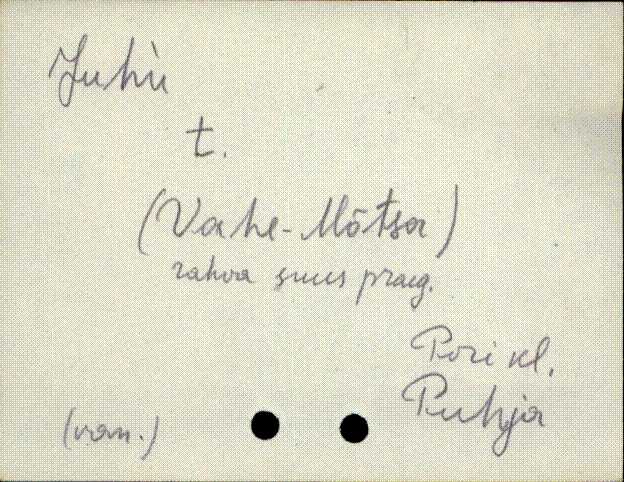 Juhìi
t.
(Vahe-Mõtsa)
rahva suus praeg.
Pori kl.
Puhja
(van.)